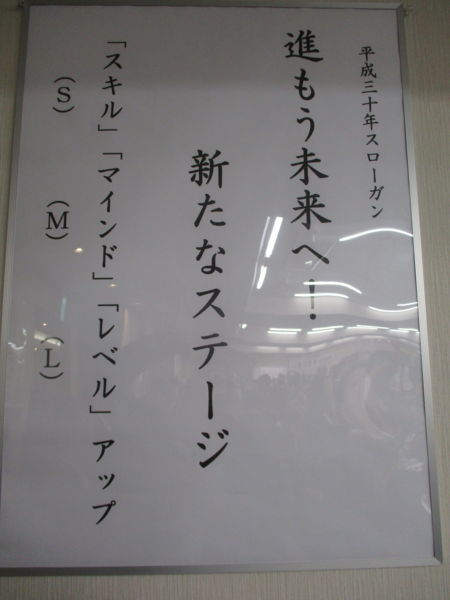 平成三十年スローガン
進もう未来へ！
新たなステージ
「スキル」「マインド」「レベル」アップ
（S）（M）（L）